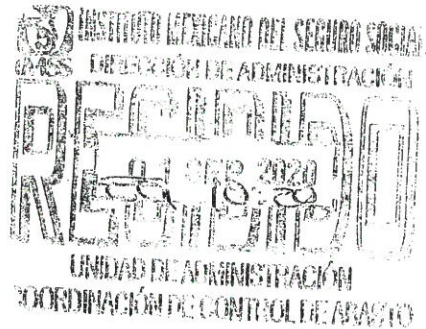 INSTITUTO MEXICANO DEL SEGURO SOCIAL
IMSS DIRECCIÓN DE ADMINISTRACIÓN
RECIBIDO
2020
10:20
UNIDAD DE ADMINISTRACIÓN
COORDINACIÓN DE CONTROL DE ABASTO